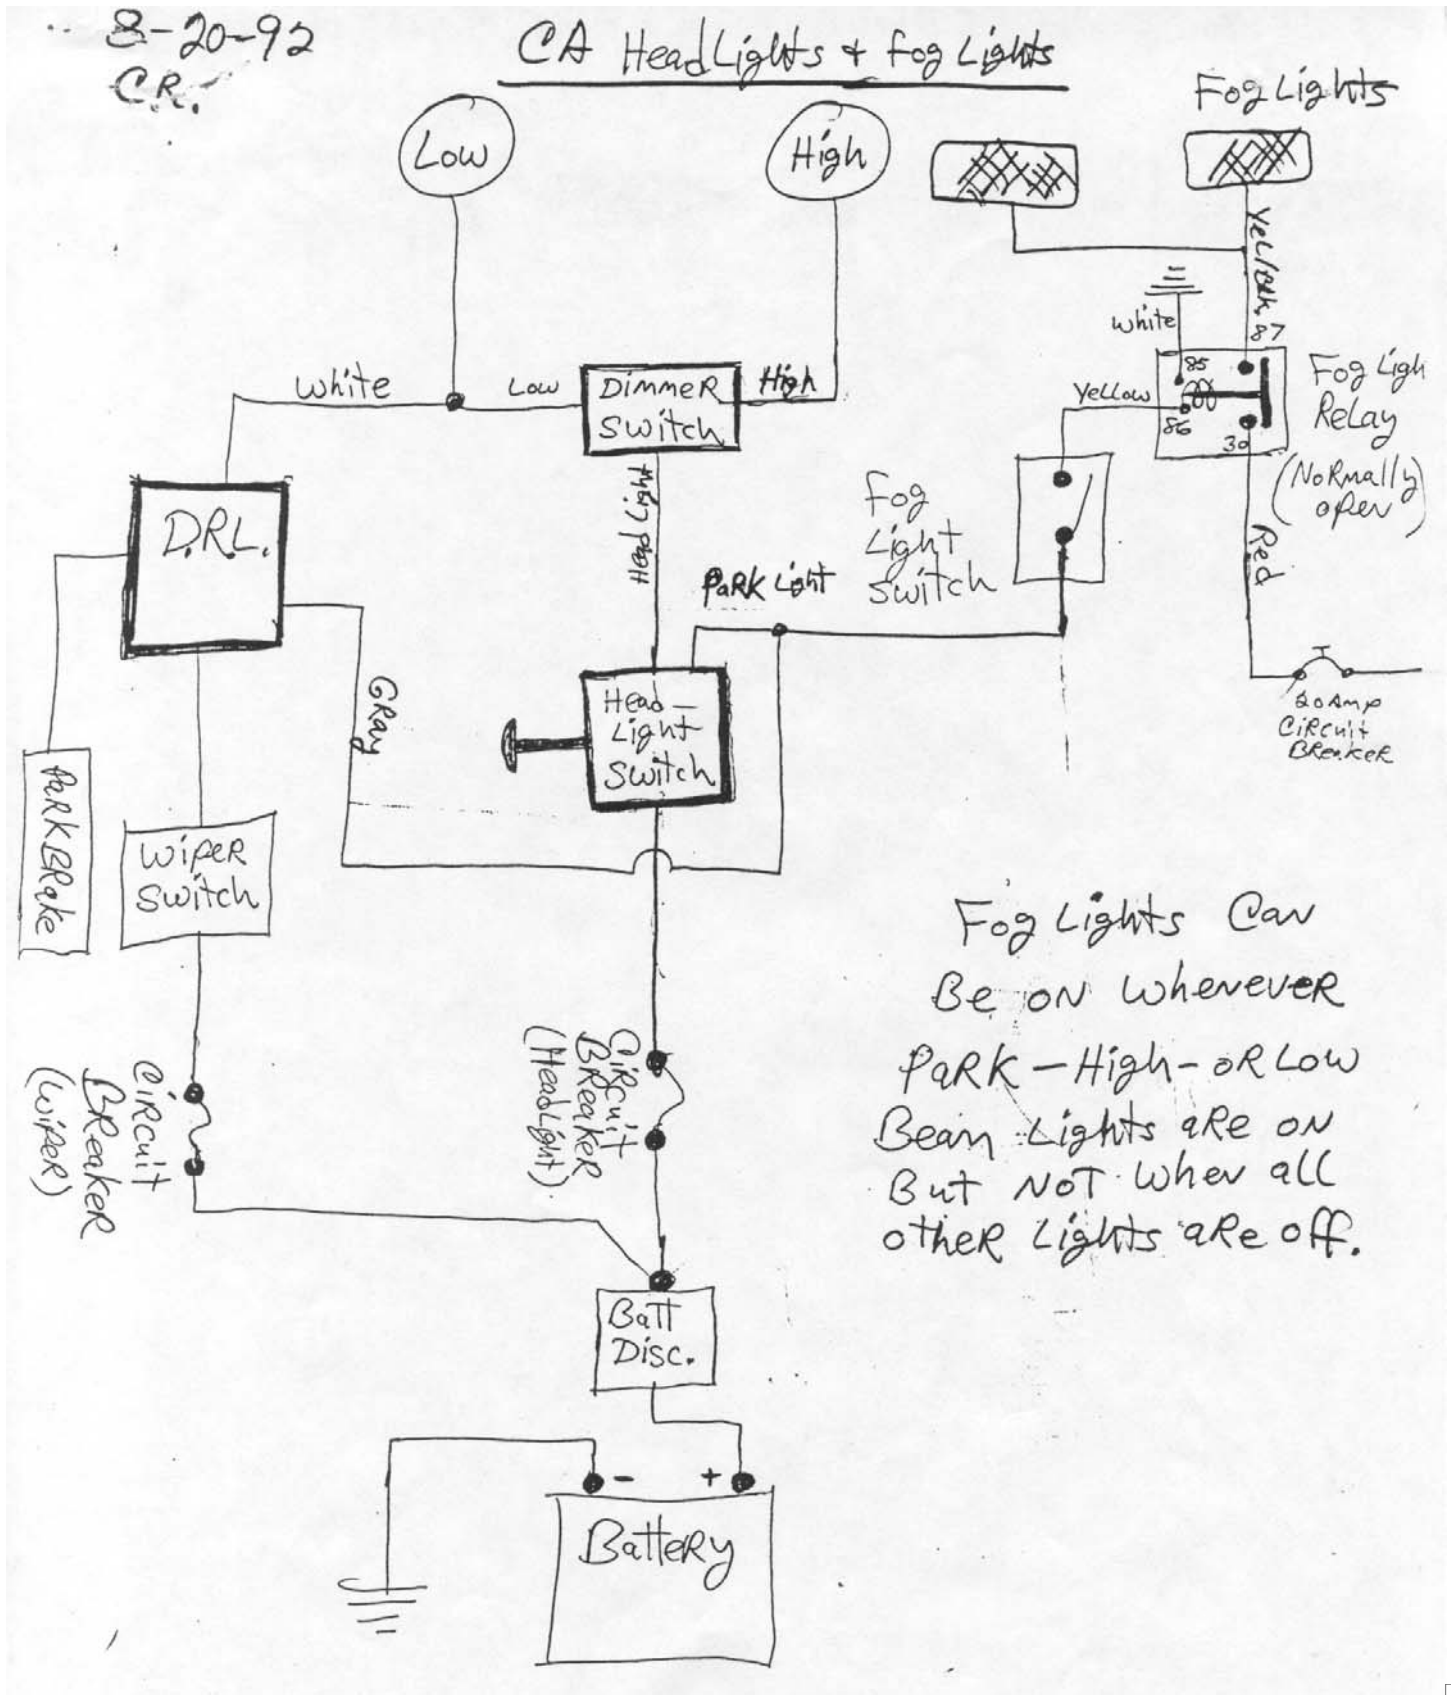 8-20-92
C.R.
CA HeadLights & Fog Lights
Fog Lights
Low
High
Yel/Blk.
White
87
85
86
30
Yellow
Fog Ligh
Relay
(Normally
open)
White
Low
Dimmer
Switch
High
Head Light
D.R.L.
Fog
Light
Switch
Red
Park Light
Gray
Head-
Light
Switch
20 Amp
Circuit
Breaker
Park Brake
Wiper
Switch
Circuit
Breaker
(Wiper)
Circuit
Breaker
(HeadLight)
Fog Lights Can
Be on Whenever
Park - High - or Low
Beam Lights are on
But Not When all
other Lights are off.
Batt
Disc.
-
+
Battery